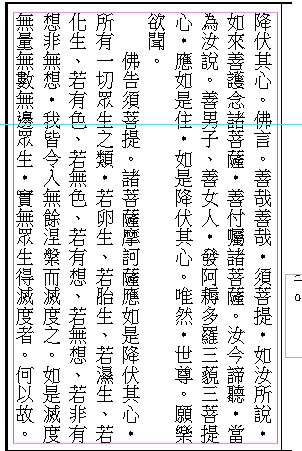 降伏其心。佛言。善哉善哉・須菩提・如汝所說・
如來善護念諸菩薩・善付囑諸菩薩。汝今諦聽・當
為汝說。善男子、善女人・發阿耨多羅三藐三菩提
心・應如是住・如是降伏其心。唯然・世尊。願樂
欲聞。
佛告須菩提。諸菩薩摩訶薩應如是降伏其心・
所有一切眾生之類・若卵生、若胎生、若濕生、若
化生、若有色、若無色、若有想、若無想、若非有
想非無想・我皆令入無餘涅槃而滅度之。如是滅度
無量無數無邊眾生・實無眾生得滅度者。何以故。
二〇